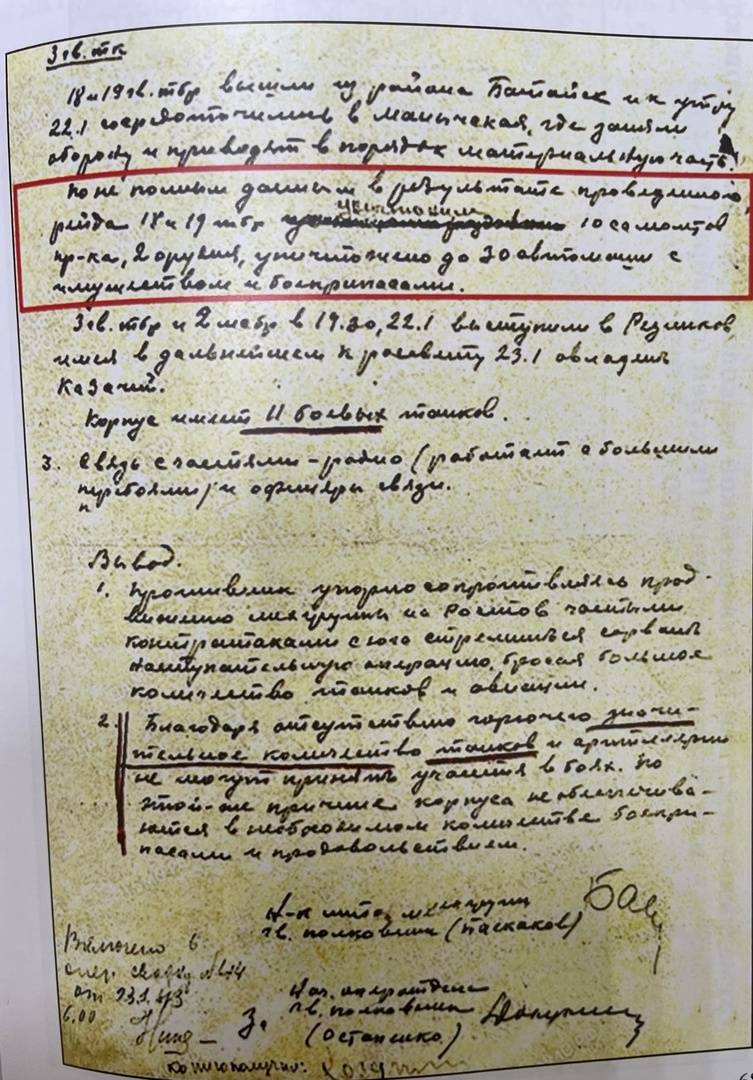 3 гв. тк
18 и 19 гв. тбр вышли из района Батайск и к утру
22.1 сосредоточились в Манычская, где заняли
оборону и приводят в порядок материальную часть.
По не полным данным в результате проведенного
рейда 18 и 19 тбр уничтожили 10 самолетов
пр-ка, 2 орудия, уничтожено до 30 автомашин с
имуществом и боеприпасами.
3 гв. тбр и 2 мбр в 19.30, 22.1 выступили в Резников,
имея в дальнейшем к рассвету 23.1 овладеть
Казачий.
Корпус имеет 11 боевых танков.
3. Связь с частями - радио (работает с большими
перебоями) и офицеры связи.
Вывод.
1. Противник упорно сопротивляясь прод-
вижению мехгруппы на Ростов частыми
контратаками с юга стремиться сорвать
наступательную операцию, бросая большое
количество танков и авиации.
2. Благодаря отсутствию горючего значи-
тельное количество танков и артиллерии
не могут принять участия в боях. По
этой-же причине корпуса не обеспечива-
ются в необходимом количестве боепри-
пасами и продовольствием.
Н-к штаба мехгруппы
гв. полковник (Паскаков)
Включено в
опер. сводку №44
от 23.1.43
6.00
Нач. оперотдела
гв. полковник
(Остапенко)